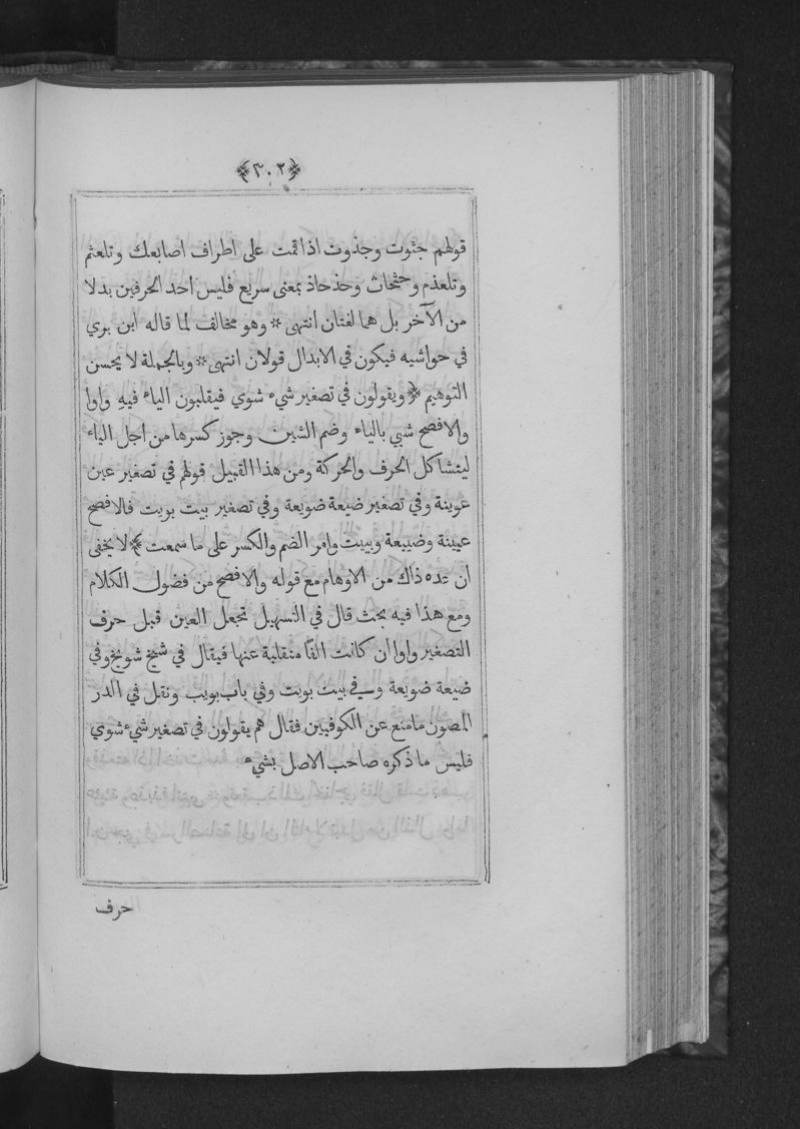 ﴿٣٠٢﴾
قولهم جثوت وجذوت اذا قمت على اطراف اصابعك وتلعثم
وتلعذم وحثحاث وحذحاذ بمعنى سريع فليس احد الحرفين بدلا
من الآخر بل هما لغتان انتهى * وهو مخالف لما قاله ابن بري
في حواشيه فيكون في الابدال قولان انتهى * وبالجملة لا يحسن
التوهيم ﴿ ويقولون في تصغير شيء شوي فيقلبون الياء فيه واوا
والافصح شيي بالياء وضم الشين وجوز كسرها من اجل الياء
ليتشاكل الحرف والحركة ومن هذا القبيل قولهم في تصغير عين
عوينة وفي تصغير ضيعة ضويعة وفي تصغير بيت بويت فالافصح
عيينة وضييعة وبييت وامر الضم والكسر على ما سمعت ﴾ لا يخفى
ان عده ذاك من الاوهام مع قوله والافصح من فضول الكلام
ومع هذا فيه بحث قال في التسهيل تجعل العين قبل حرف
التصغير واوا ان كانت الفًا منقلبة عنها فيقال في شيخ شويخ وفي
ضيعة ضويعة وفي بيت بويت وفي باب بويب ونقل في الدر
المصون ما منع عن الكوفيين فقال هم يقولون في تصغير شيء شوي
فليس ما ذكره صاحب الاصل بشيء
حرف